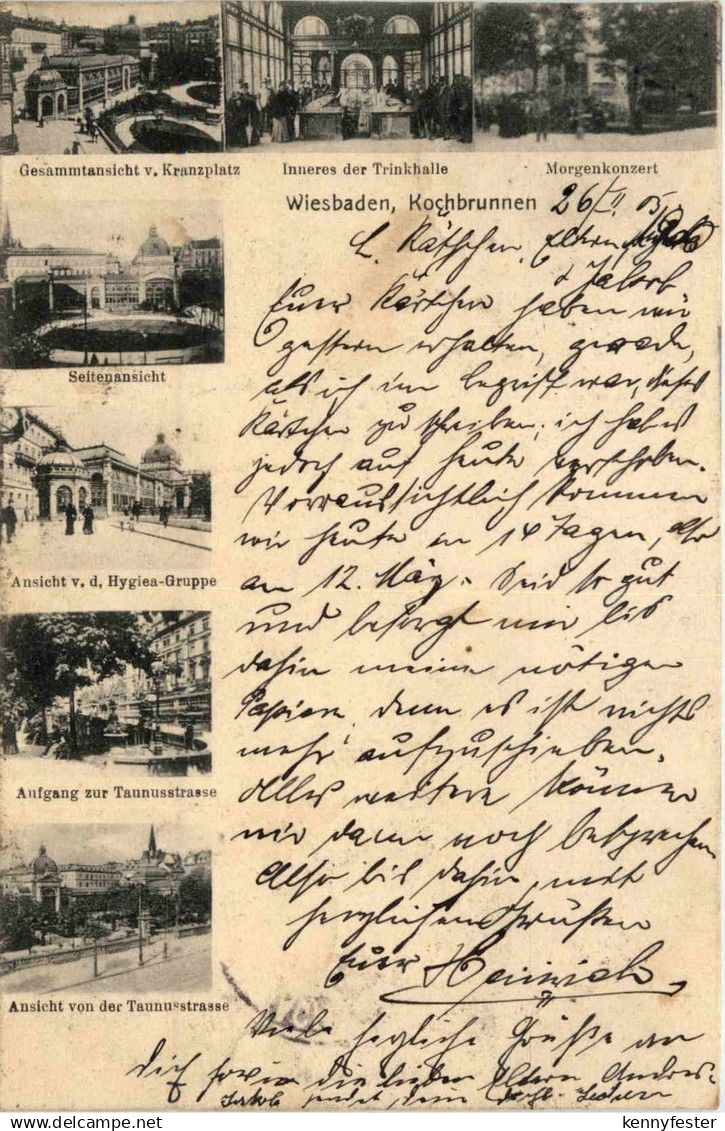 Gesammtansicht v. Kranzplatz
Inneres der Trinkhalle
Morgenkonzert
Wiesbaden, Kochbrunnen
26/II 05
L. Käthchen, Eltern
& Jakob
Euer Kärtchen haben wir
gestern erhalten, gerade,
als ich im Begriff war, dieses
Kärtchen zu schreiben; ich hab es
jedoch auf heute verschoben.
Vorraussichtlich kommen
wir heute in 14 Tagen, also
am 12. März. Seid so gut
und besorgt mir bis
dahin meine nötigen
Papiere, denn es ist nichts
mehr aufzuschieben.
Alles weitere können
wir dann noch besprechen
Also bis dahin, mit
herzlichen Grüßen
Euer Heinrich
Viele herzliche Grüße an
dich sowie die lieben Eltern
Jakob sendet
Seitenansicht
Ansicht v. d, Hygiea-Gruppe
Aufgang zur Taunusstrasse
Ansicht von der Taunusstrasse
kennyfester